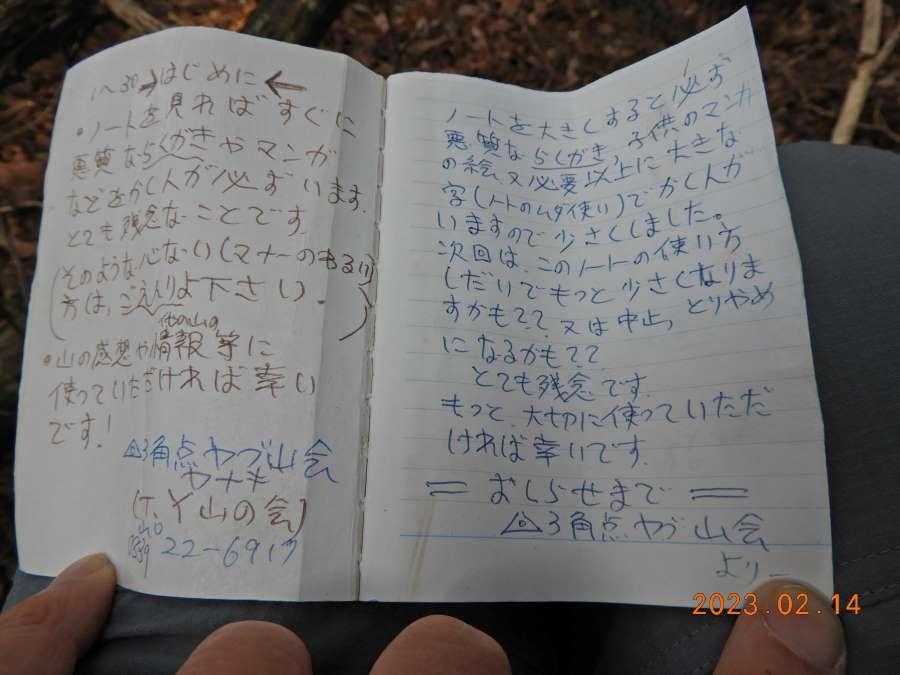 →はじめに←
・ノートを見ればすぐに
悪質ならくがきやマンガ
などをかく人が必ずいます.
とても残念なことです.
(そのような心ない(マナーのわるい)
方は,ごえんりょ下さい.)
他の山の
・山の感想や情報等に
使っていただければ幸い
です!
△3角点ヤブ山会
ヤナキ
(T.Y山の会)
山口
0839
22-6917
ノートを大きくすると必ず
悪質ならくがき,子供のマンガ
の絵又必要以上に大きな
字(ノートのムダ使い)でかく人が
いますので少さくしました。
次回は、このノートの使い方
しだいでもっと少さくなりま
すかも??又は中止,とりやめ
になるかも??
とても残念です.
もっと、大切に使っていただ
ければ幸いです.
= おしらせまで =
△3角点ヤブ山会
より―
2023.02.14